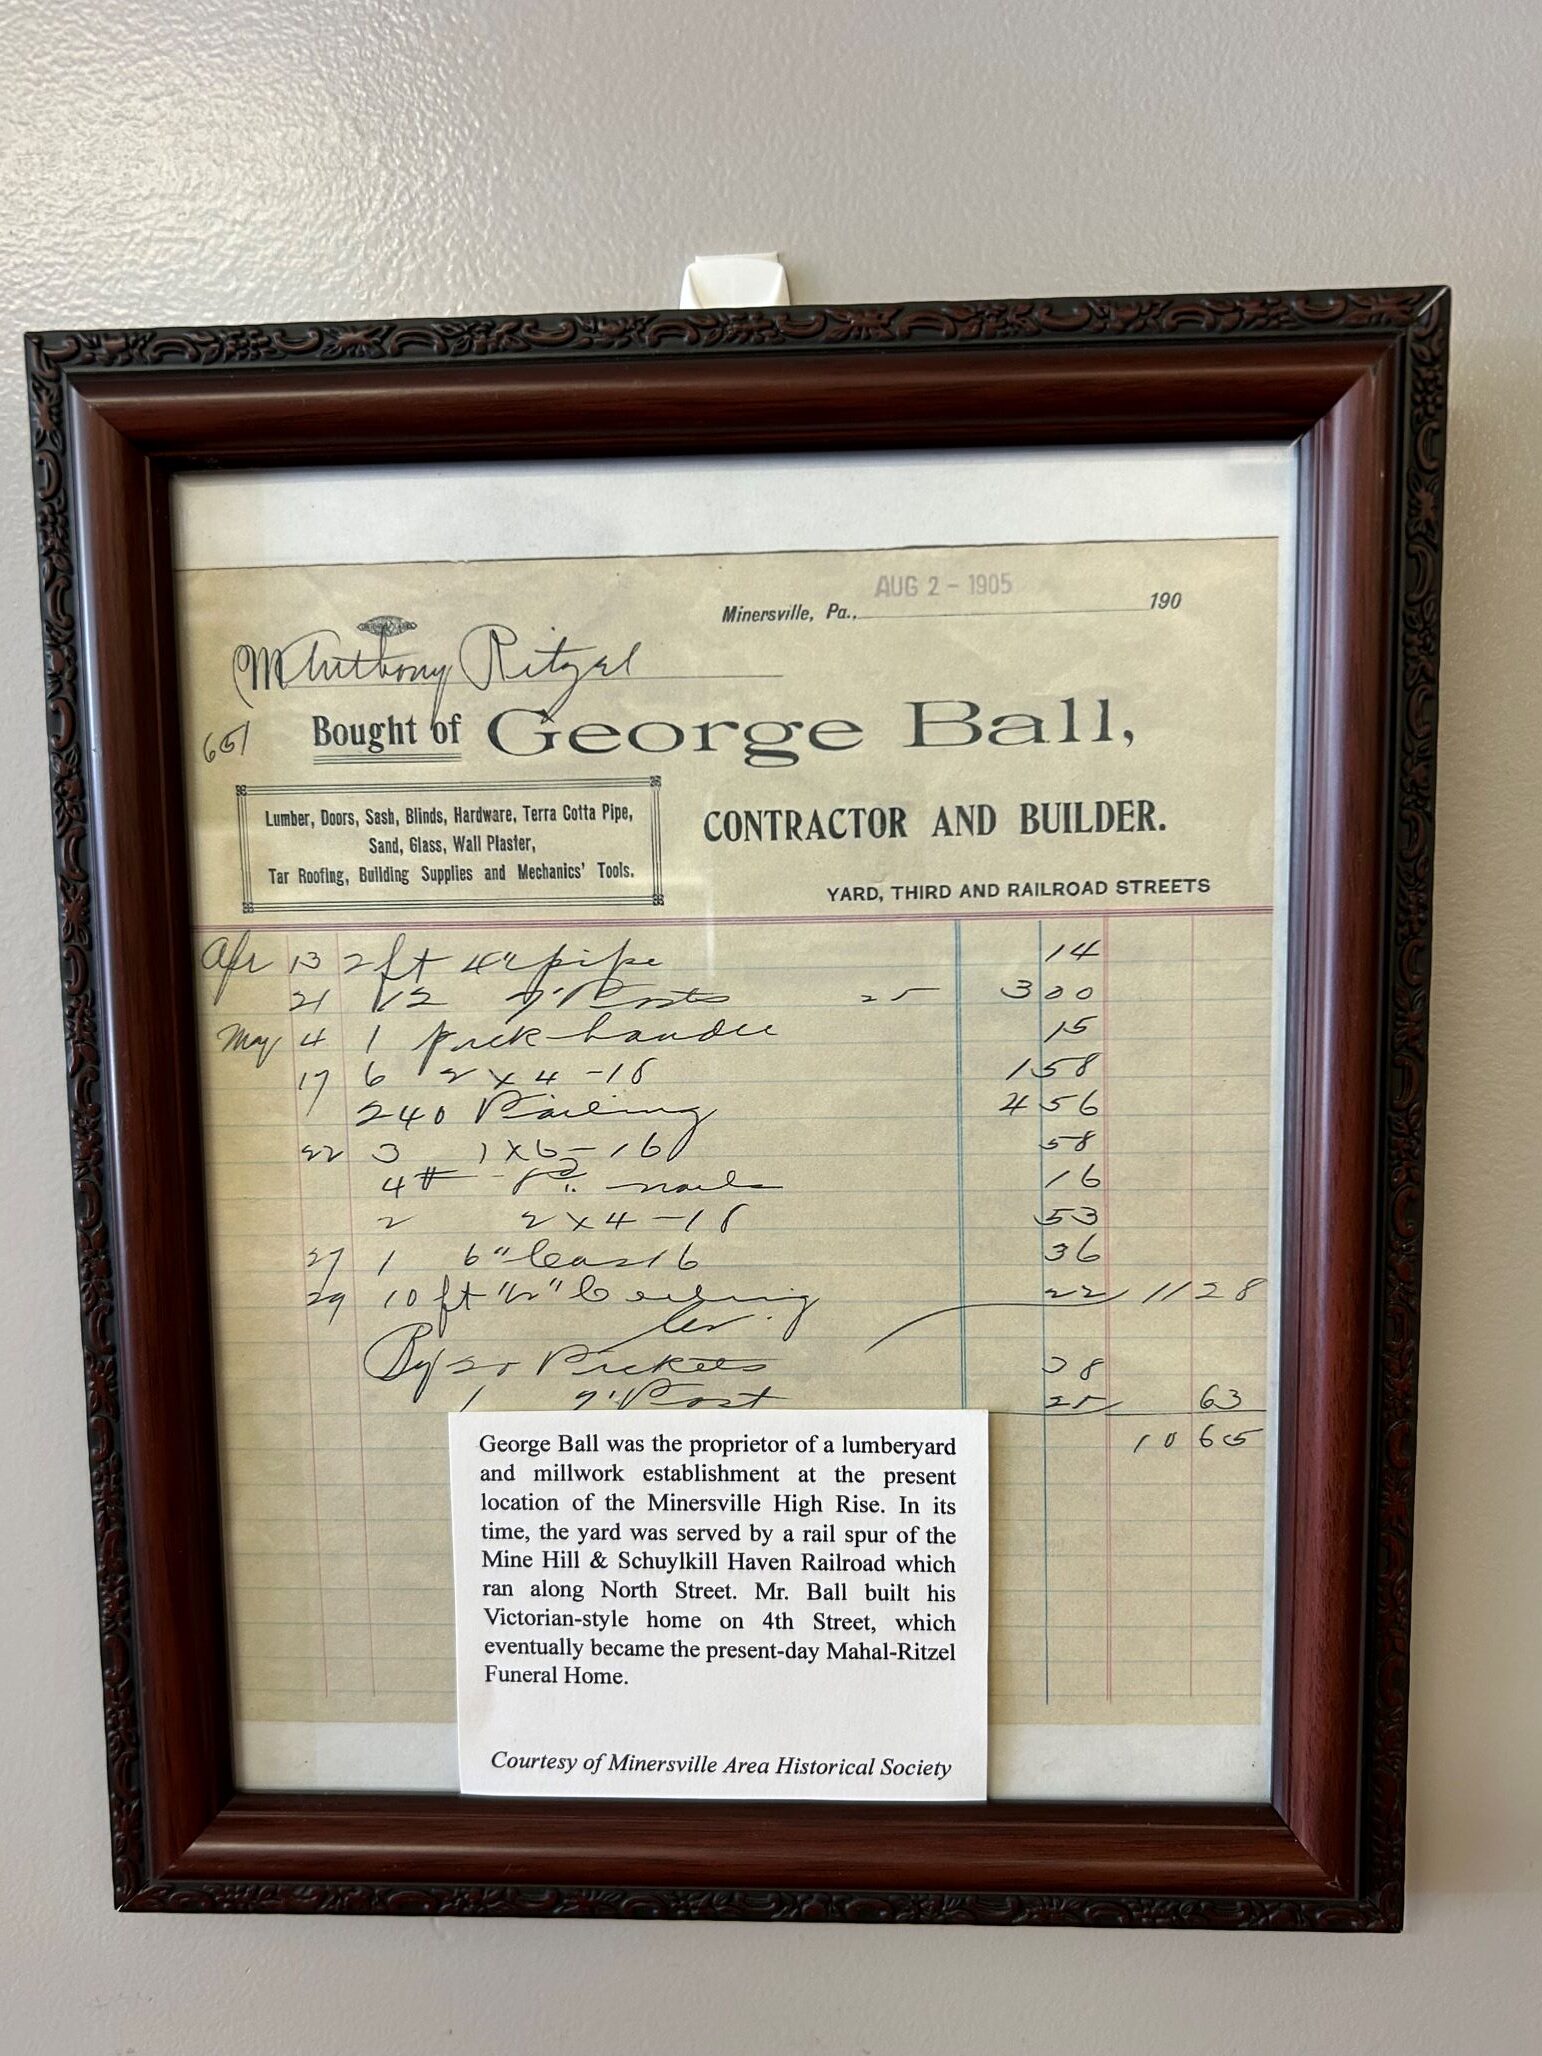 AUG 2 - 1905
Minersville, Pa., 190
M Anthony Ritzel
651
Bought of George Ball,
Lumber, Doors, Sash, Blinds, Hardware, Terra Cotta Pipe,
Sand, Glass, Wall Plaster,
Tar Roofing, Building Supplies and Mechanics' Tools.
CONTRACTOR AND BUILDER.
YARD, THIRD AND RAILROAD STREETS
Apr 13 2 ft 4" pipe 14
21 12 7' Posts 25 3 00
May 4 1 pick handle 15
17 6 2 x 4 - 18 1 58
240 Pailing 4 56
22 3 1 x 6 - 16 58
4 # 8 nails 16
2 2 x 4 - 18 53
27 1 6" 16 36
29 10 ft Ceiling 22 11 28
Cr.
By 20 Pickets 38
1 7' Post 25 63
10 65
George Ball was the proprietor of a lumberyard
and millwork establishment at the present
location of the Minersville High Rise. In its
time, the yard was served by a rail spur of the
Mine Hill & Schuylkill Haven Railroad which
ran along North Street. Mr. Ball built his
Victorian-style home on 4th Street, which
eventually became the present-day Mahal-Ritzel
Funeral Home.
Courtesy of Minersville Area Historical Society